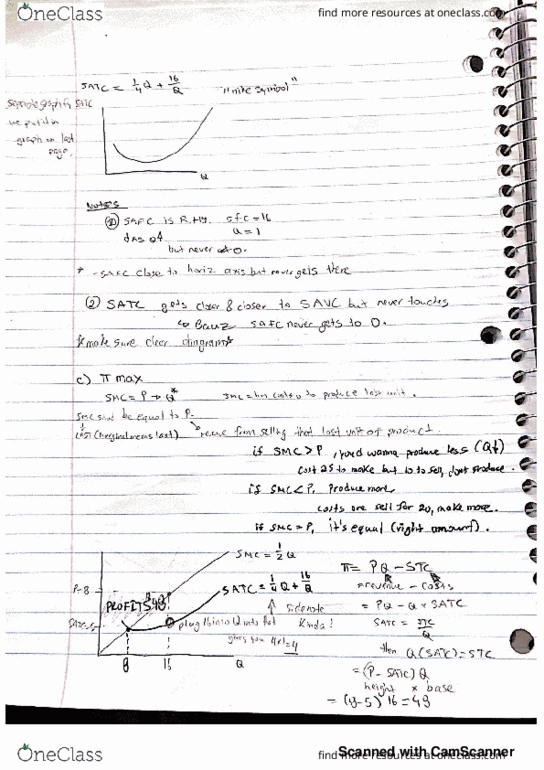 OneClass
find more resources at oneclass.com
SATC = 1/4 Q + 16/Q
"nike symbol"
graph on last page.
Q
Notes
① SAFC is R.Hy. SFC = 16
Q = 1
d as Q↑
but never 0.
* - SAFC close to horiz axis but never gets there
② SATC gets closer & closer to SAVC but never touches
↳ Bcuz SAFC never gets to 0.
*make sure clear diagram*
c) π max
SMC = P → Q*
to produce last unit.
SMC must be equal to P.
(marginal means last)
from selling that last unit of product.
if SMC > P, you'd wanna produce less (Q↓)
cost 25 to make but 10 to sell, don't produce.
if SMC < P, Produce more
costs one sell for 20, make more.
if SMC = P, it's equal (right amount).
SMC = 1/2 Q
P=8
PROFITS
SATC = 1/4 Q + 16/Q
sidenote
Kinda!
plug 16 into Q into that
gives you 4+1
8
16
Q
π = PQ - STC
= revenue - costs
= PQ - Q × SATC
SATC = STC/Q
then Q(SATC) = STC
= (P - SATC) Q
height × base
16 = 48
Scanned with CamScanner
OneClass
find more resources at oneclass.com